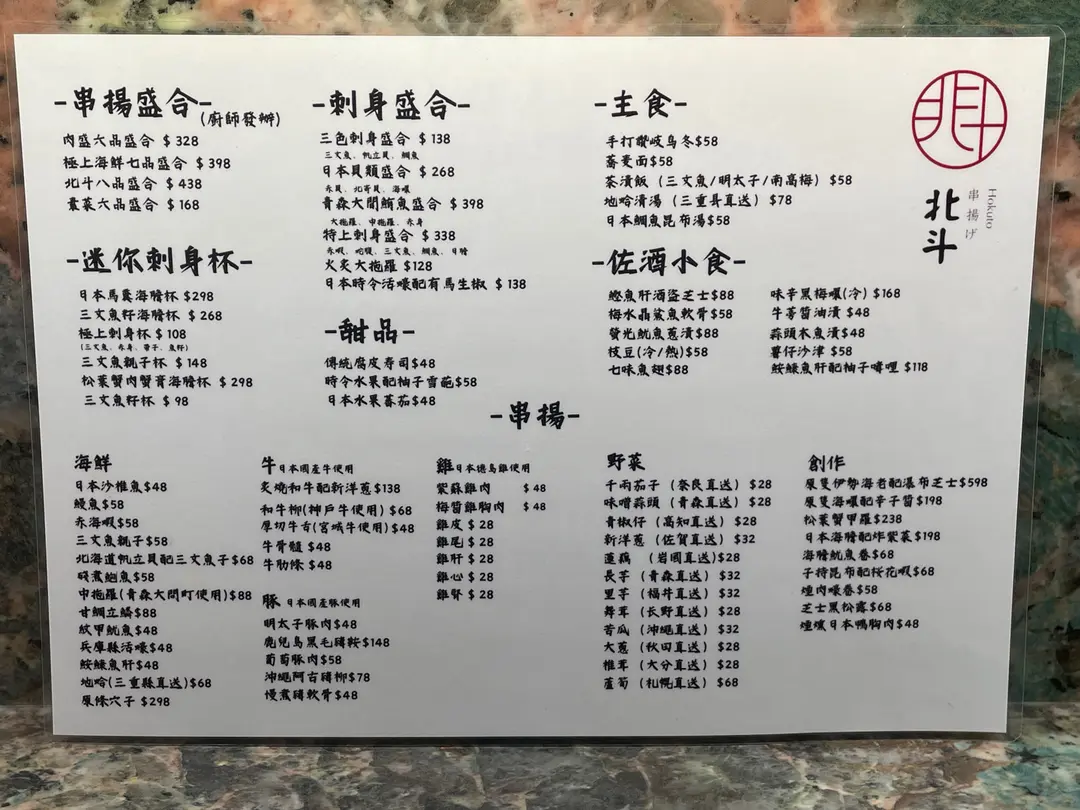 -串揚盛合-
(廚師發辦)
肉盛六品盛合 $ 328
極上海鮮七品盛合 $ 398
北斗八品盛合 $ 438
素菜六品盛合 $ 168
-迷你刺身杯-
日本馬糞海膽杯 $298
三文魚籽海膽杯 $ 268
極上刺身杯 $ 108
(三文魚、赤身、帶子、魚籽)
三文魚親子杯 $ 148
松葉蟹肉蟹膏海膽杯 $ 298
三文魚籽杯 $ 98
-刺身盛合-
三色刺身盛合 $ 138
三文魚、帆立貝、鯛魚
日本貝類盛合 $ 268
赤貝、北寄貝、海螺
青森大間鮪魚盛合 $ 398
大拖羅、中拖羅、赤身
特上刺身盛合 $ 338
赤蝦、三文魚、鯛魚、
火炙大拖羅 $128
日本時令活蠔配有馬生椒 $ 138
-甜品-
傳統腐皮壽司$48
時令水果配柚子雪葩$58
日本水果蕃茄$48
-主食-
手打讚岐烏冬$58
蕎麥面$58
茶漬飯 (三文魚/明太子/南高梅) $58
地哈清湯 (三重県直送) $78
日本鯛魚昆布湯$58
-佐酒小食-
鰹魚肝酒盜芝士$88
梅水晶鯊魚軟骨$58
螢光魷魚蔥漬$88
枝豆(冷/熱)$58
七味魚翅$88
味辛黑梅螺(冷) $168
牛蒡醬油漬 $48
蒜頭木魚漬$48
薯仔沙津 $58
鮟鱇魚肝配柚子啫喱 $118
北斗
串揚げ
Hokuto
-串揚-
海鮮
日本沙椎魚$48
鰻魚$58
赤海蝦$58
三文魚親子$58
北海道帆立貝配三文魚子$68
碱煮鮑魚$58
中拖羅(青森大間町使用)$88
甘鯛立鱗$88
紋甲魷魚$48
兵庫縣活蠔$48
鮟鱇魚肝$48
地哈(三重縣直送)$68
原條穴子 $298
牛日本國產牛使用
炙燒和牛配新洋蔥$138
和牛柳(神戶牛使用) $68
厚切牛舌(宮城牛使用)$48
牛骨髓 $48
牛肋條 $48
豚 日本國產豚使用
明太子豚肉$48
鹿兒島黑毛豬鞍$148
葡萄豚肉$58
沖繩阿古豬柳$78
慢煮豬軟骨$48
雞日本德島雞使用
紫蘇雞肉 $ 48
梅醬雞胸肉 $ 48
雞皮 $ 28
雞尾 $ 28
雞肝 $ 28
雞心 $ 28
雞腎 $ 28
野菜
千両茄子 (奈良直送) $28
味噌蒜頭 (青森直送) $28
青椒仔 (高知直送) $28
新洋蔥 (佐賀直送) $32
蓮藕 (岩國直送)$28
長芋 (青森直送) $32
里芋 (福井直送) $32
舞茸 (長野直送) $28
苦瓜 (沖繩直送) $32
大蔥 (秋田直送) $28
椎茸 (大分直送) $28
蘆筍 (札幌直送) $68
創作
原隻伊勢海老配瀑布芝士$598
原隻海螺配辛子醬$198
松葉蟹甲羅$238
日本海膽配炸紫菜$198
海膽魷魚卷$68
子持昆布配桜花蝦$68
煙肉蠔卷$58
芝士黑松露$68
煙燻日本鴨胸肉$48